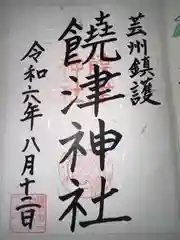 芸州鎮護
饒津神社
令和六年八月十二日